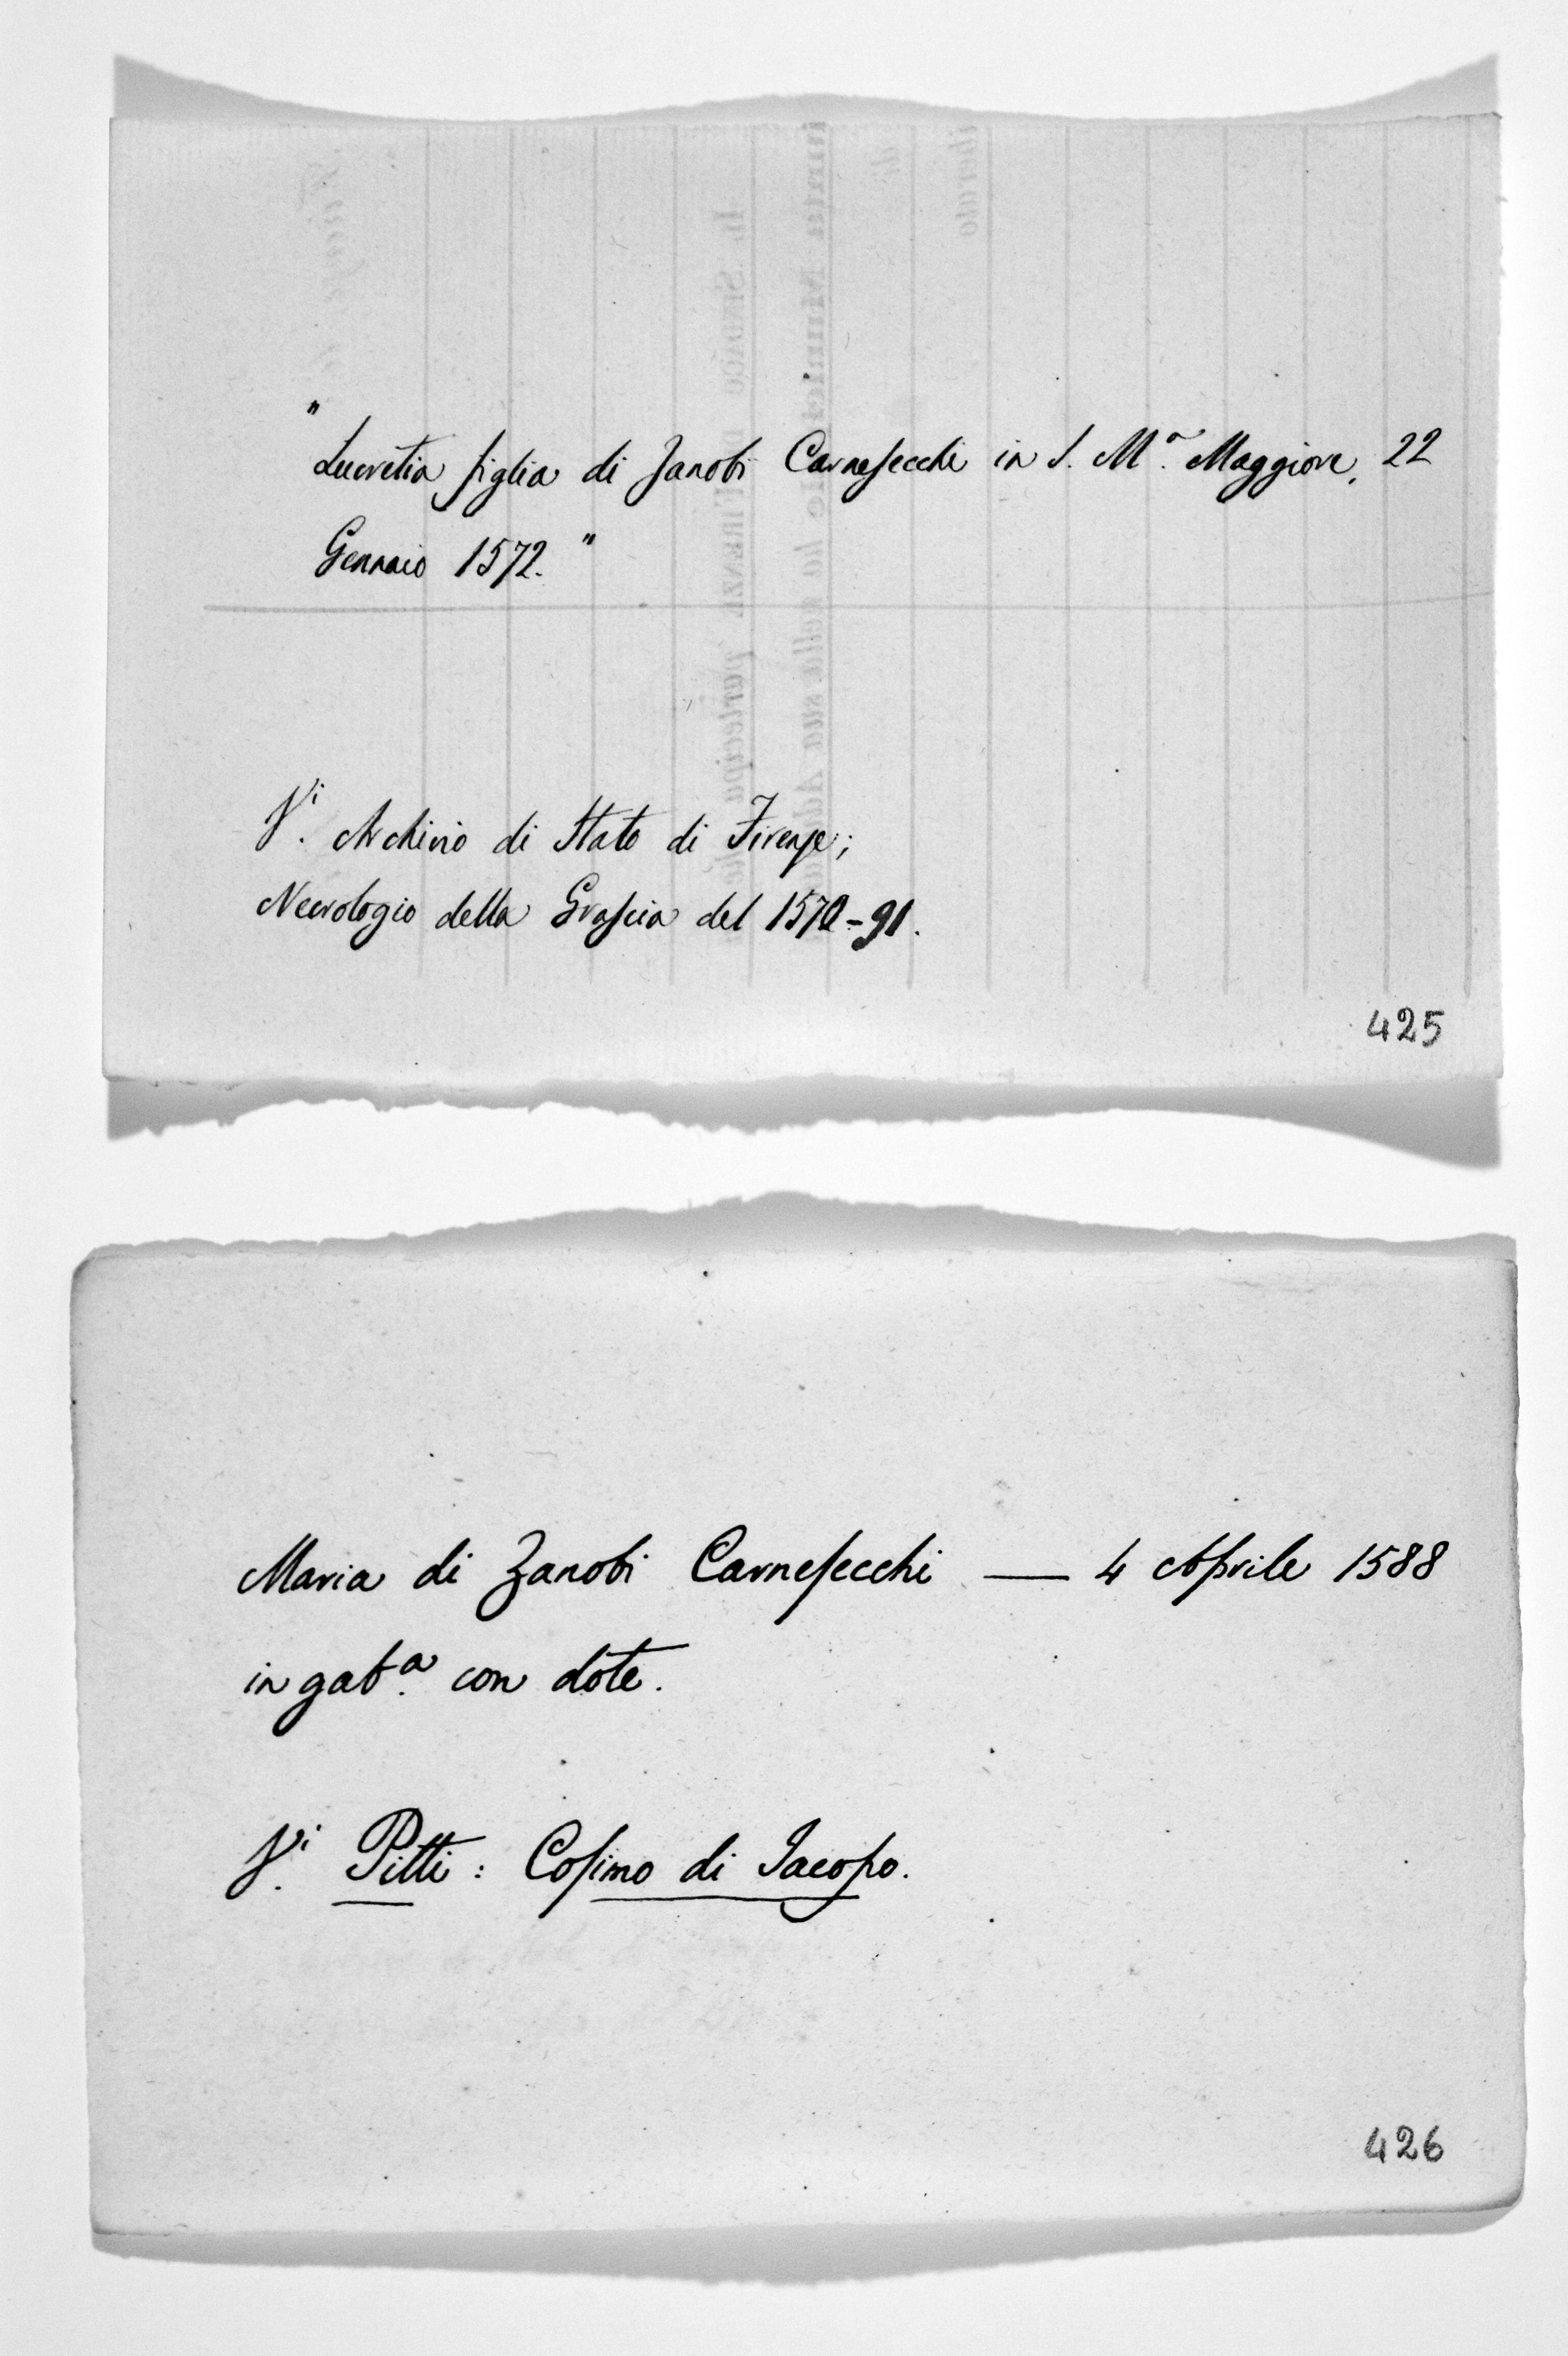 "Lucretia figlia di Zanobi Carnesecchi in S. Mª. Maggiore, 22
Gennaio 1572."
Vⁱ. Archivio di Stato di Firenze;
Necrologio della Grascia del 1570-91.
425
Maria di Zanobi Carnesecchi — 4 Aprile 1588
in gabª. con dote.
Vⁱ. Pitti: Cosimo di Iacopo.
426